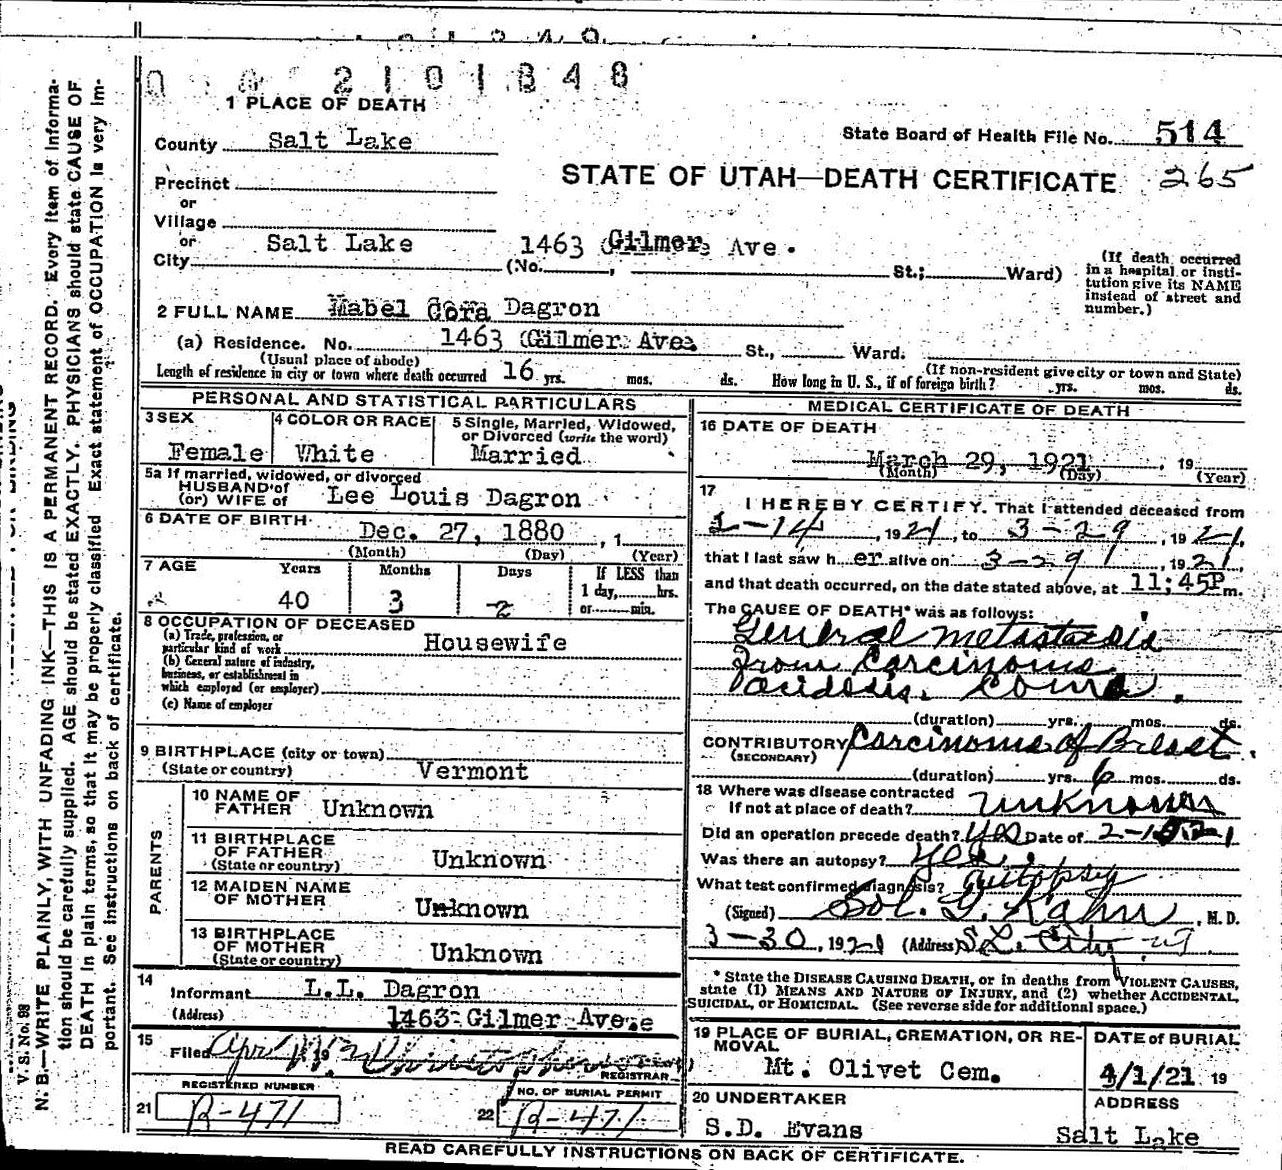 2101848
1 PLACE OF DEATH
County Salt Lake
State Board of Health File No. 514
Precinct
or
STATE OF UTAH—DEATH CERTIFICATE 265
Village
or
City Salt Lake
(No. 1463 Gilmer Ave. St.; Ward)
(If death occurred in a hospital or institution give its NAME instead of street and number.)
2 FULL NAME Mabel Cora Dagron
(a) Residence. No. 1463 Gilmer Ave. St., Ward.
(Usual place of abode)
(If non-resident give city or town and State)
Length of residence in city or town where death occurred 16 yrs. mos. ds. How long in U. S., if of foreign birth? yrs. mos. ds.
PERSONAL AND STATISTICAL PARTICULARS
3 SEX Female
4 COLOR OR RACE White
5 Single, Married, Widowed, or Divorced (write the word) Married
5a If married, widowed, or divorced
HUSBAND of
(or) WIFE of Lee Louis Dagron
6 DATE OF BIRTH Dec. 27, 1880, 1
(Month) (Day) (Year)
7 AGE Years Months Days If LESS than
1 day, hrs.
or min.
40 3 2
8 OCCUPATION OF DECEASED
(a) Trade, profession, or particular kind of work Housewife
(b) General nature of industry, business, or establishment in which employed (or employer)
(c) Name of employer
9 BIRTHPLACE (city or town)
(State or country) Vermont
PARENTS
10 NAME OF FATHER Unknown
11 BIRTHPLACE OF FATHER (State or country) Unknown
12 MAIDEN NAME OF MOTHER Unknown
13 BIRTHPLACE OF MOTHER (State or country) Unknown
14
Informant L.L. Dagron
(Address) 1463 Gilmer Ave.
15
Filed Apr 19
REGISTRAR
REGISTERED NUMBER
21 R-471
NO. OF BURIAL PERMIT
22 R-471
MEDICAL CERTIFICATE OF DEATH
16 DATE OF DEATH
March 29, 1921, 19
(Month) (Day) (Year)
17
I HEREBY CERTIFY, That I attended deceased from
1-14, 1921, to 3-29, 1921,
that I last saw her alive on 3-29, 1921,
and that death occurred, on the date stated above, at 11:45P m.
The CAUSE OF DEATH* was as follows:
General metastasis
from Carcinoma
acidosis. Coma.
(duration) yrs. mos. ds.
CONTRIBUTORY Carcinoma of Breast.
(SECONDARY)
(duration) yrs. 6 mos. ds.
18 Where was disease contracted
if not at place of death? unknown
Did an operation precede death? yes Date of
Was there an autopsy? yes.
What test confirmed diagnosis? autopsy
(Signed) Sol. G. Kahn, M. D.
3-30, 1921 (Address) S.L. City UT
* State the DISEASE CAUSING DEATH, or in deaths from VIOLENT CAUSES,
state (1) MEANS AND NATURE OF INJURY, and (2) whether ACCIDENTAL,
SUICIDAL, or HOMICIDAL. (See reverse side for additional space.)
19 PLACE OF BURIAL, CREMATION, OR REMOVAL
Mt. Olivet Cem.
DATE of BURIAL
4/1/21 19
20 UNDERTAKER
S.D. Evans
ADDRESS
Salt Lake
READ CAREFULLY INSTRUCTIONS ON BACK OF CERTIFICATE.
V. S. No. 98
N. B.—WRITE PLAINLY, WITH UNFADING INK—THIS IS A PERMANENT RECORD. Every item of Information should be carefully supplied. AGE should be stated EXACTLY. PHYSICIANS should state CAUSE OF
DEATH in plain terms, so that it may be properly classified. Exact statement of OCCUPATION is very important. See instructions on back of certificate.